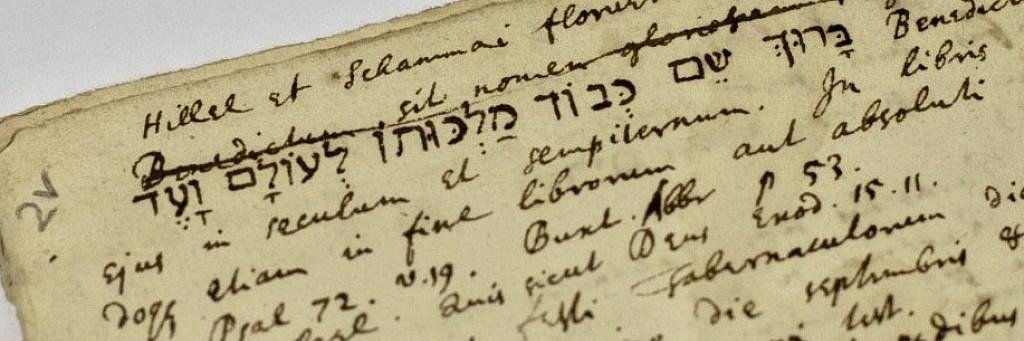 Hillel et Schammai florue
Benedictum sit nomen gloriosum
בָּרוּךְ שֵׁם כְּבוֹד מַלְכוּתוֹ לְעוֹלָם וָעֶד Benedict
ejus in seculum et sempiternum. In libris
etiam in fine librorum aut absoluti
Psal 72. v. 19. Buxt. Abbr p 53.
Quis sicut Deus Exod. 15. 11.
festi Tabernaculorum die
die septembris
2v